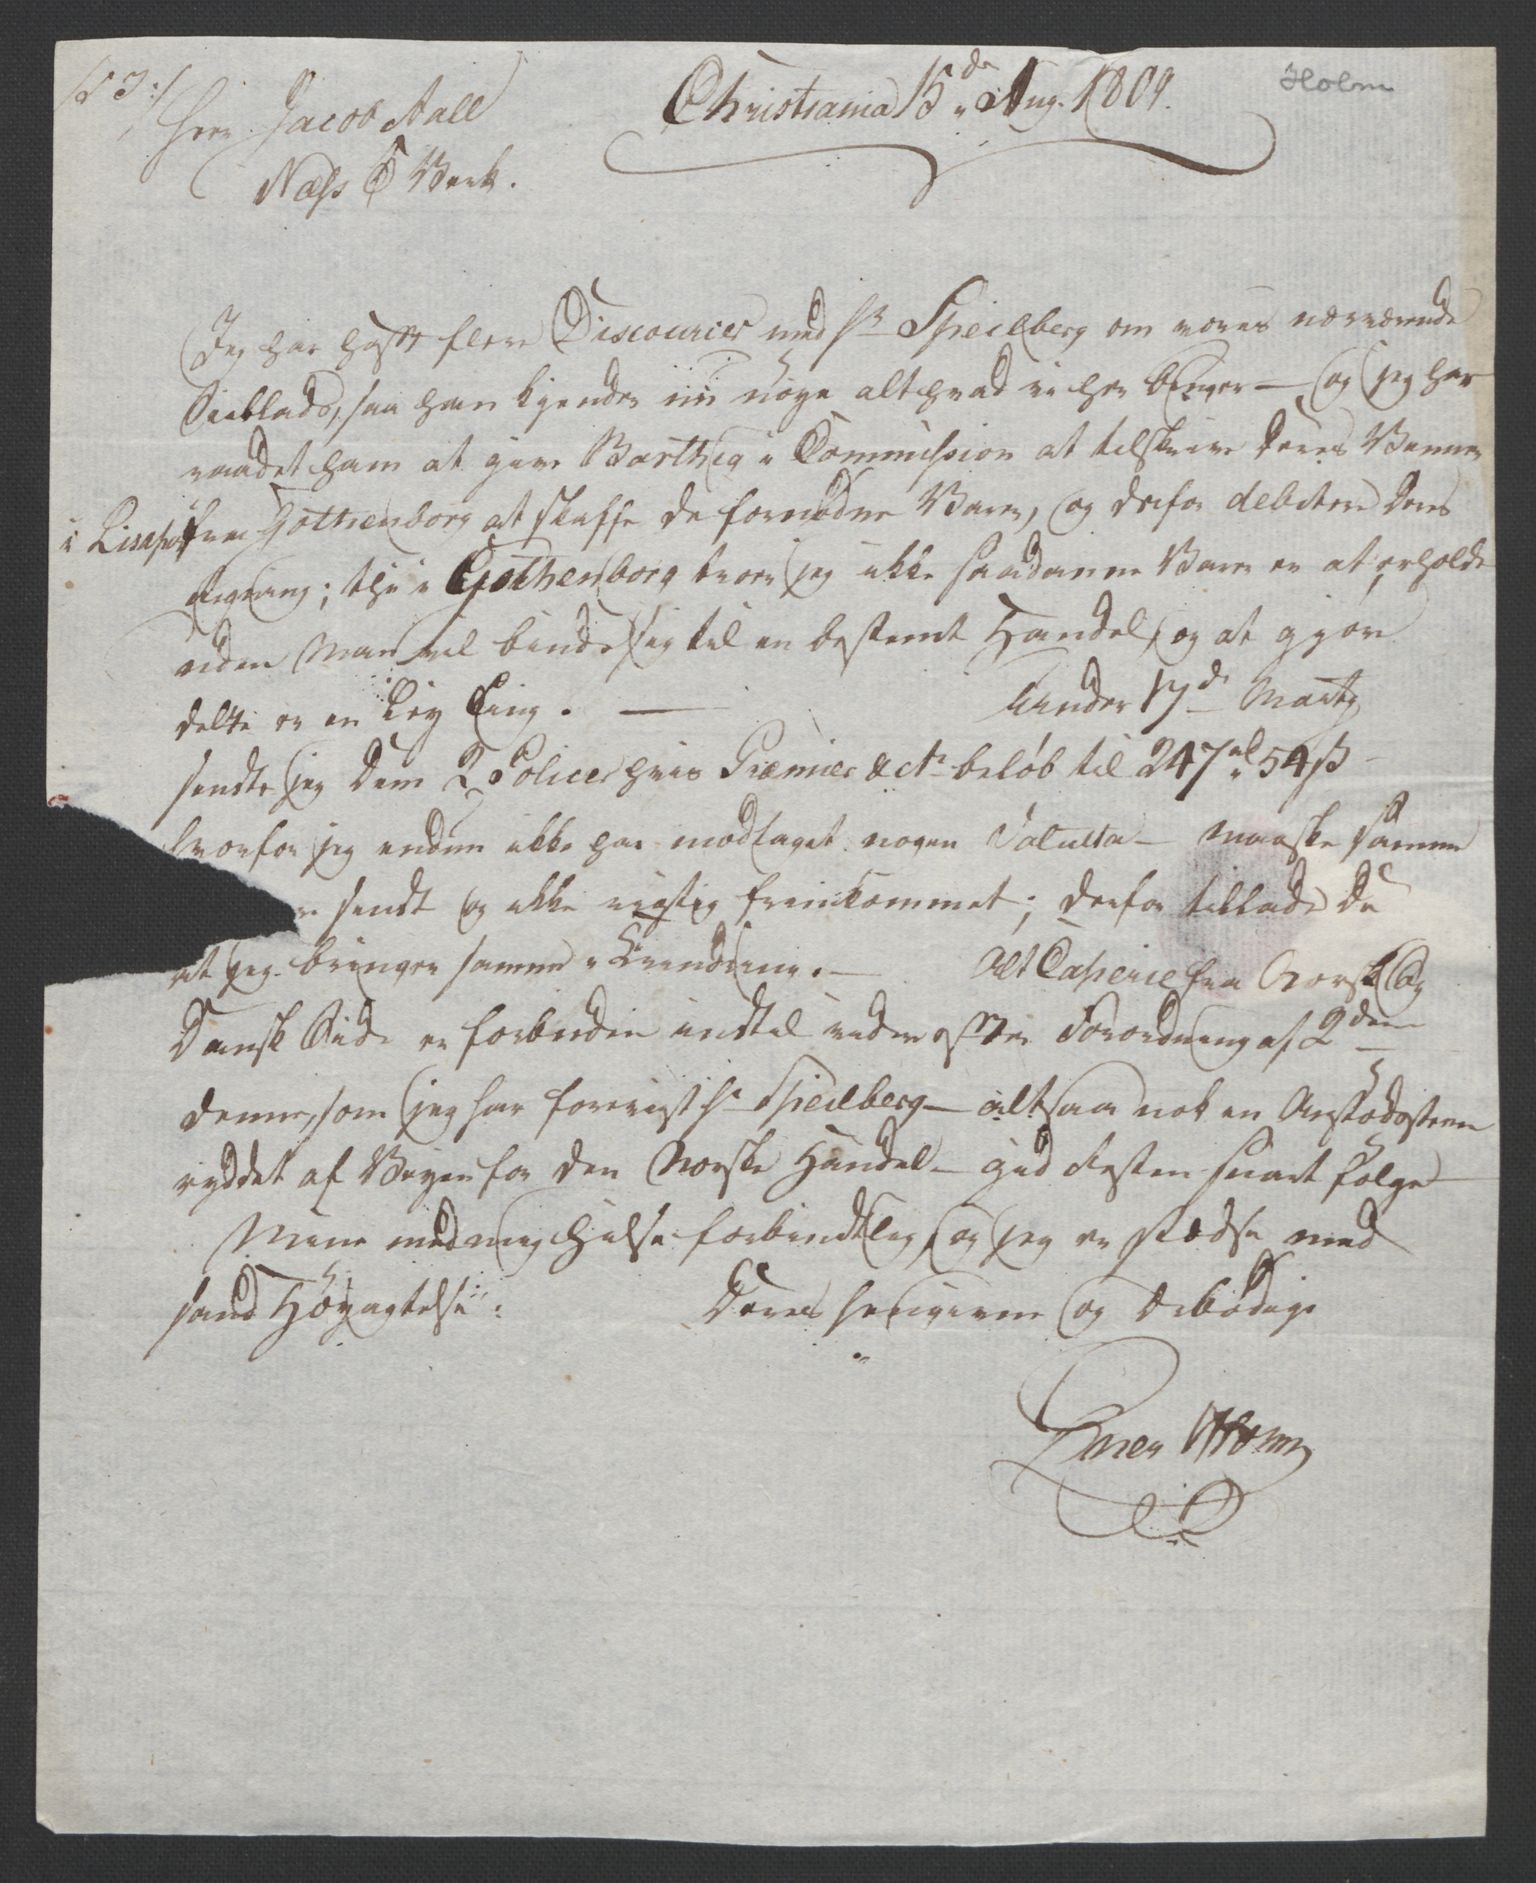 Holm
Christiania 15de Aug. 1809.
Herr Jacob Aall
Næss Verk.
Jeg har havt flere Discourser med Hr Speilberg om vores nærværende
saa han kjender nu nöye alt hvad vi her bruger — og jeg har
raadet ham at give Barth i Commission at tilskrive Deres Venner
i fra Gothenborg at skaffe de fornödne Varer, og derfor debitere Deres
Regning; thi i Gothenborg troer jeg ikke saadanne Varer er at erholde
uden man vil binde sig til en bestemt Handel, og at gjöre
dette er en Ting. — Under 17de Marty
sendte jeg Dem 2 Policer hvis Præmier &ct belöb til 247 rd 54 ß
hvorfor jeg endnu ikke har modtaget nogen Valutta — maaske samme
sendt og ikke rigtig fremkommet; derfor tillade De
at jeg bringer samme i Erindring. — Alt Caperie fra Norsk og
Dansk Side er forbuden indtil videre efter Forordning af 2den
denne, som jeg har foreviist Hr Speilberg — altsaa nok en Anstödssteen
ryddet af Veyen for den Norske Handel — gid Resten snart fölge
Mine med mig hilse forbindtlig, og jeg er stedse med
sand Höyagtelse: Deres hengivne og ærbödige
Holm